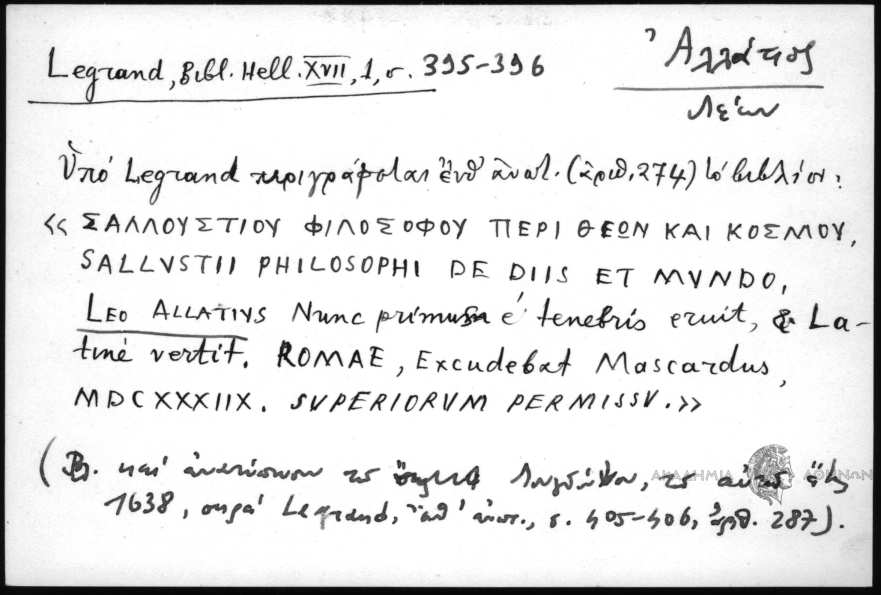 Legrand, Bibl. Hell. XVII, 1, σ. 395-396
Ἀλλάτιος
Λέων
Ὑπό Legrand περιγράφεται ἔνθ' ἀνωτ. (ἀριθ. 274) τό βιβλίον:
«ΣΑΛΛΟΥΣΤΙΟΥ ΦΙΛΟΣΟΦΟΥ ΠΕΡΙ ΘΕΩΝ ΚΑΙ ΚΟΣΜΟΥ,
SALLVSTII PHILOSOPHI DE DIIS ET MVNDO,
LEO ALLATIVS Nunc primus é tenebris eruit, & La-
tiné vertit. ROMAE, Excudebat Mascardus,
MDCXXXIIX. SVPERIORVM PERMISSV.»
(Βλ. καί ἀνατύπωσιν τοῦ Λουγδούνου, τοῦ αὐτοῦ ἔτ.
1638, παρά Legrand, ἔνθ' ἀνωτ., σ. 405-406, ἀριθ. 287).
ΑΚΑΔΗΜΙΑ ΑΘΗΝΩΝ